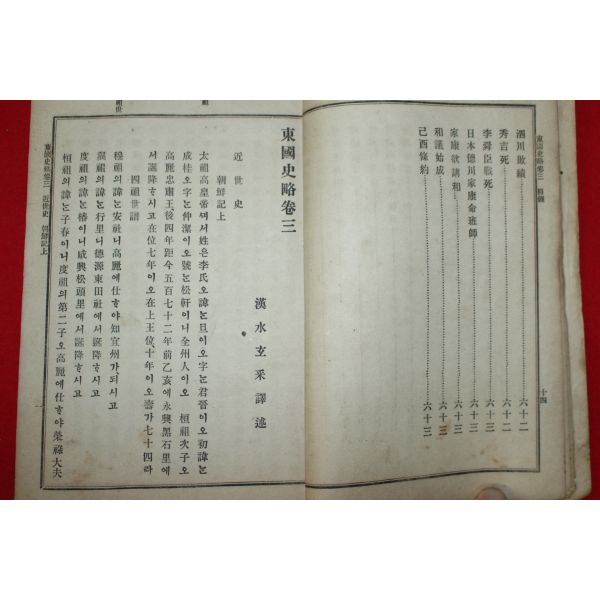 東國史略卷三 目錄
泗川敗績 六十二
秀吉死 六十二
李舜臣戰死 六十二
日本德川家康命班師 六十三
家康欲講和 六十三
和議始成 六十三
己酉條約 六十三
十四
東國史略卷三
近世史
漢水玄采譯述
朝鮮記上
太祖高皇帝며셔姓은李氏오諱는旦이오字는君晉이오初諱는
成桂오字는仲潔이오號는松軒이니全州人이오 桓祖次子오
高麗忠肅王後四年距今五百七十二年前乙亥에永興黑石里에
셔誕降ᄒᆞ시고在位七年이오在上王位十年이오壽가七十四라
四祖世譜
穆祖의諱는安社니高麗에仕ᄒᆞ야知宜州가되시고
翼祖의諱는行里니德源東田社에셔誕降ᄒᆞ시고
度祖의諱는椿이니咸興松頭里에셔誕降ᄒᆞ시고
桓祖의諱는子春이니度祖의第二子오高麗에仕ᄒᆞ야榮祿大夫
東國史略卷三 近世史 朝鮮記上